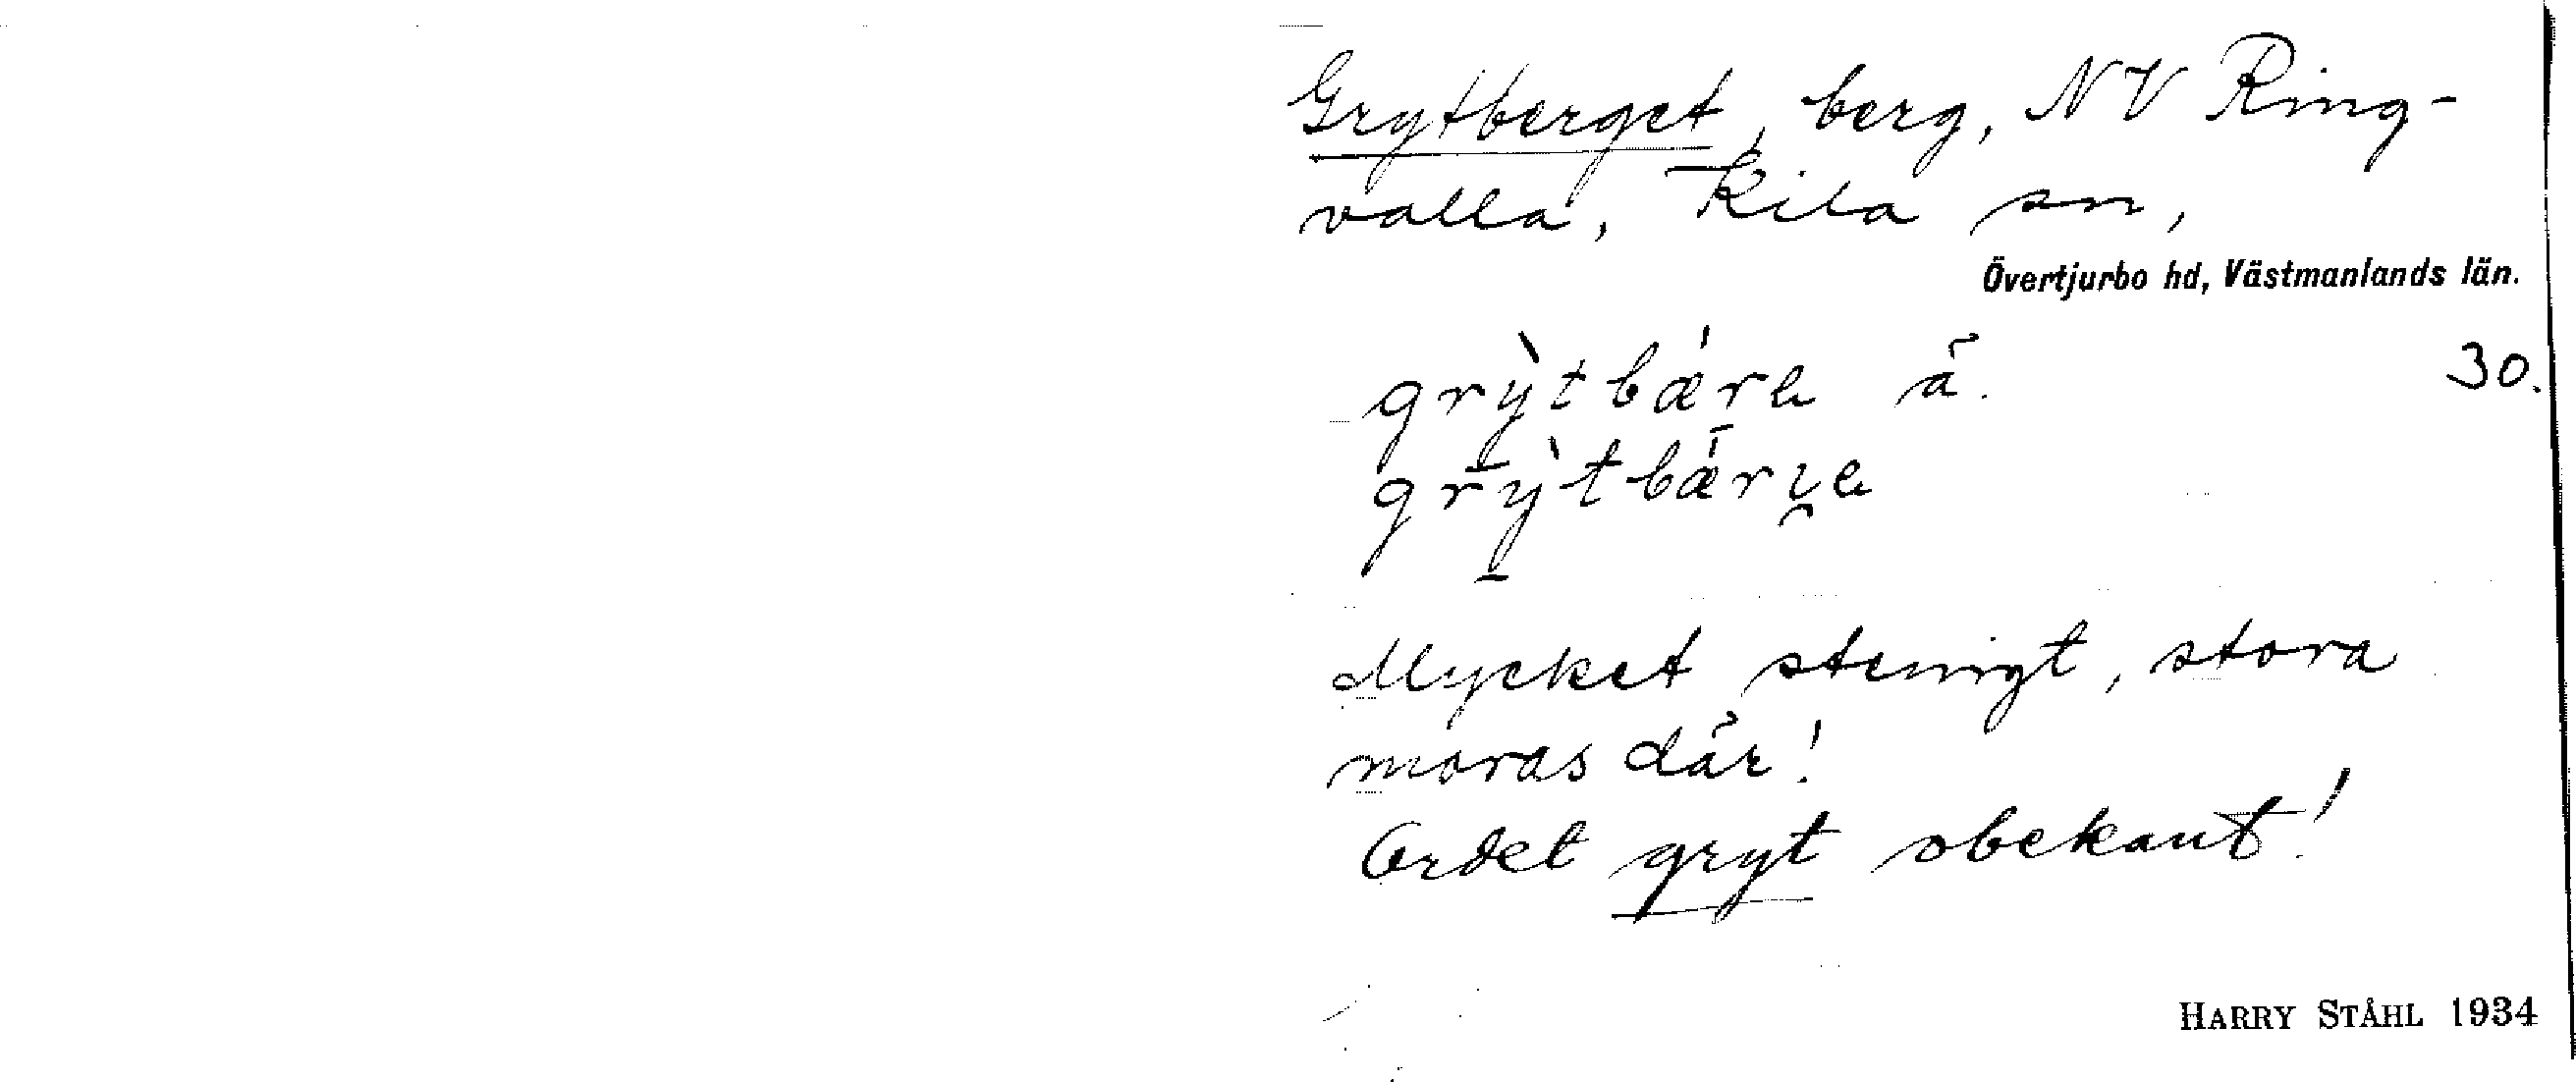 Grytberget, berg, NV Ring-
valla, Kila sn,
Övertjurbo hd, Västmanlands län.
grỳtbǽre ä. 30.
grỳtbǽrɩ̯e
Mycket stenigt, stora
moras där!
Ordet gryt obekant!
HARRY STÅHL 1934